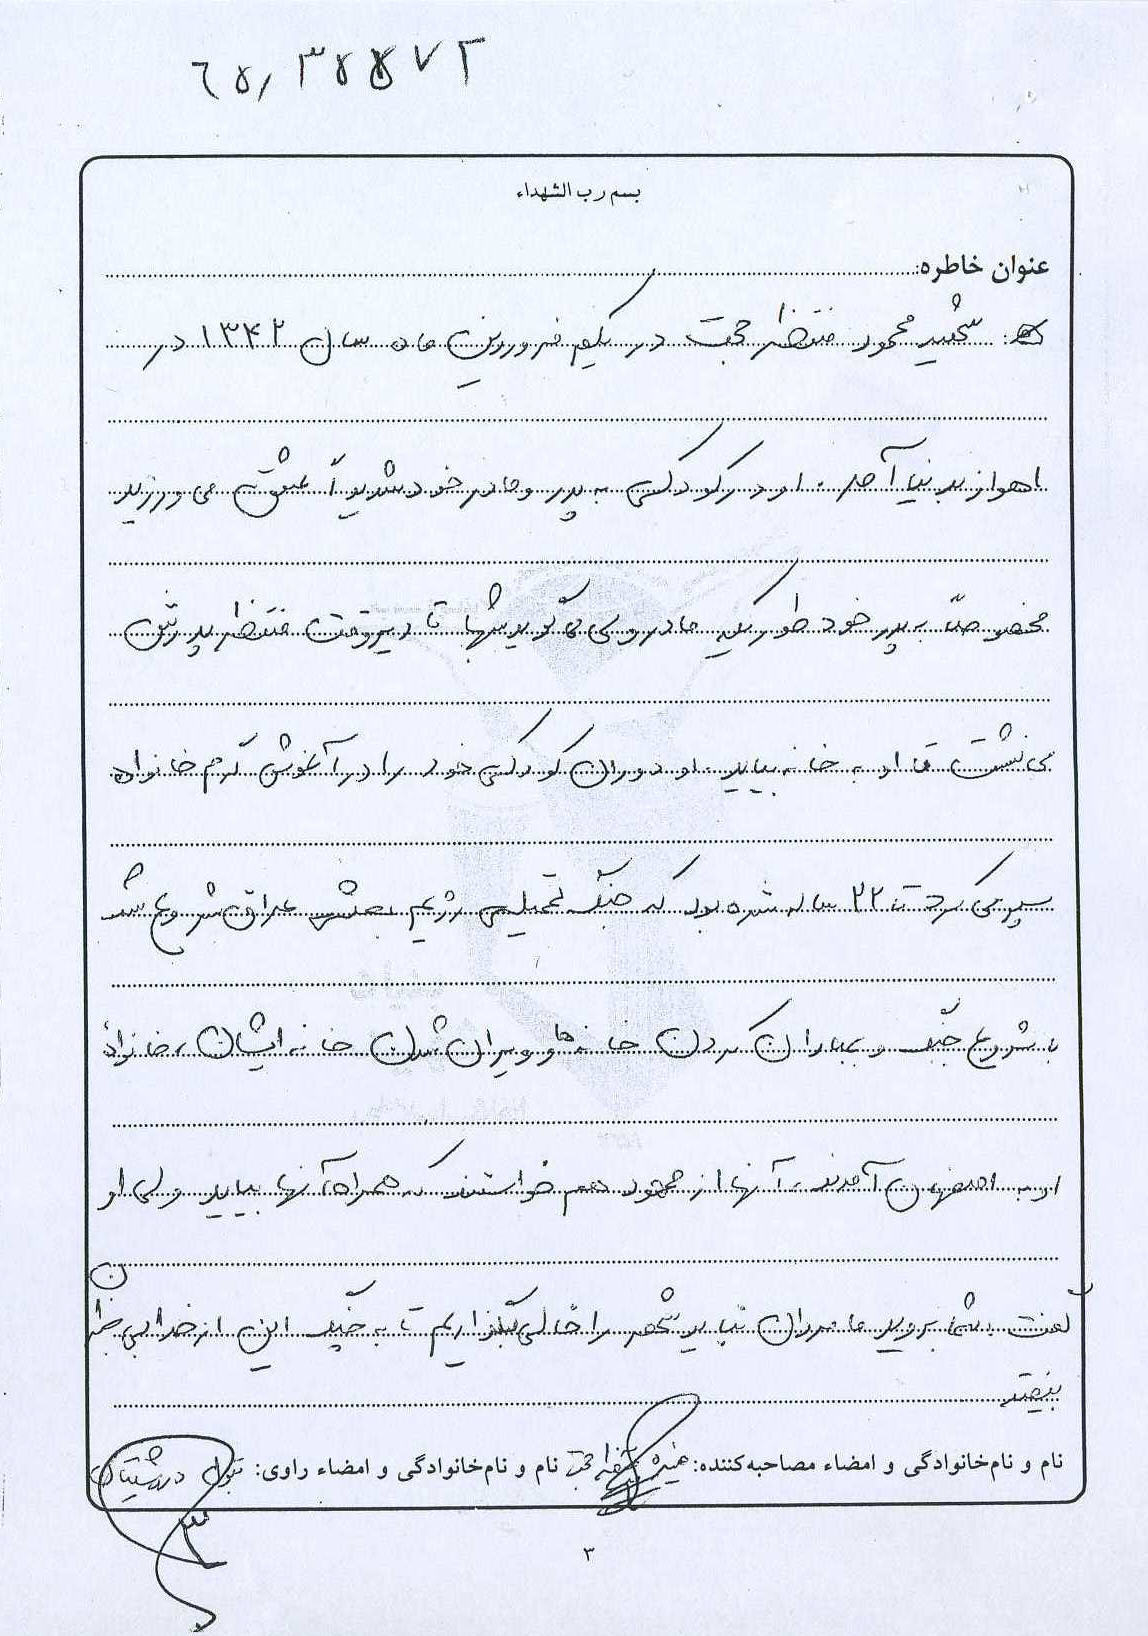 ۶۵٫۳۵۵۷۲
بسم رب الشهداء
عنوان خاطره:
شهید محمود منتظر حجت در یکم فروردین ماه سال ۱۳۴۲ در
اهواز بدنیا آمد. او در کودکی به پدر و مادر خود شدیداً عشق می ورزید
مخصوصاً به پدر خود طوریکه مادر وی می گوید شبها تا دیروقت منتظر پدرش
می نشست تا او به خانه بیاید. او دوران کودکی خود را در آغوش گرم خانواده
سپری کرد تا ۲۲ ساله شده بود که جنگ تحمیلی رژیم بعثی عراق شروع شد
با شروع جنگ و بمباران کردن خانه ها و ویران شدن خانه ایشان، خانوادۀ
او به اصفهان آمدند، آنها از محمود هم خواستند که همراه آنها بیاید ولی او
گفت شما بروید ما مردان نباید شهر را خالی بگذاریم تا به چنگ این از خدا بی خبران
بیفتد
نام و نام‌خانوادگی و امضاء مصاحبه‌کننده: منتظر حجت نام و نام‌خانوادگی و امضاء راوی: بتول
۳
۳